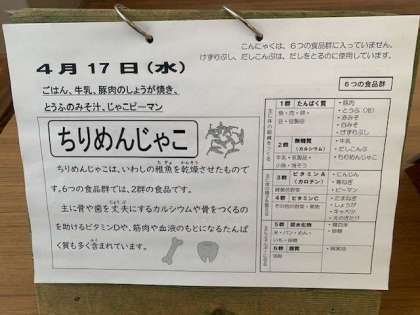 こんにゃくは、6つの食品群に入っていません。
けずりぶし、だしこんぶは、だしをとるのに使用しています。
4月17日(水)
ごはん、牛乳、豚肉のしょうが焼き、
とうふのみそ汁、じゃこピーマン
ちりめんじゃこ
ちりめんじゃこは、いわしの稚魚を乾燥させたもので
す。6つの食品群では、2群の食品です。
主に骨や歯を丈夫にするカルシウムや骨をつくるの
を助けるビタミンDや、筋肉や血液のもとになるたんぱ
く質も多く含まれています。
6つの食品群
1群 たんぱく質
魚・肉・卵・
豆・豆製品
・豚肉
・とうふ(冷)
・赤みそ
・白みそ
・けずりぶし
2群 無機質
(カルシウム)
牛乳・乳製品・
小魚・海そう
・牛乳
・だしこんぶ
・ちりめんじゃこ
3群 ビタミンA
(カロテン)
緑黄色野菜
・にんじん
・青ねぎ
・ピーマン
4群 ビタミンC
その他の野菜・果物
・たまねぎ
・しょうが
・キャベツ
・えのきたけ
5群 炭水化物
米・パン・めん・
いも・砂糖
・精白米
・砂糖
6群 脂質
油脂